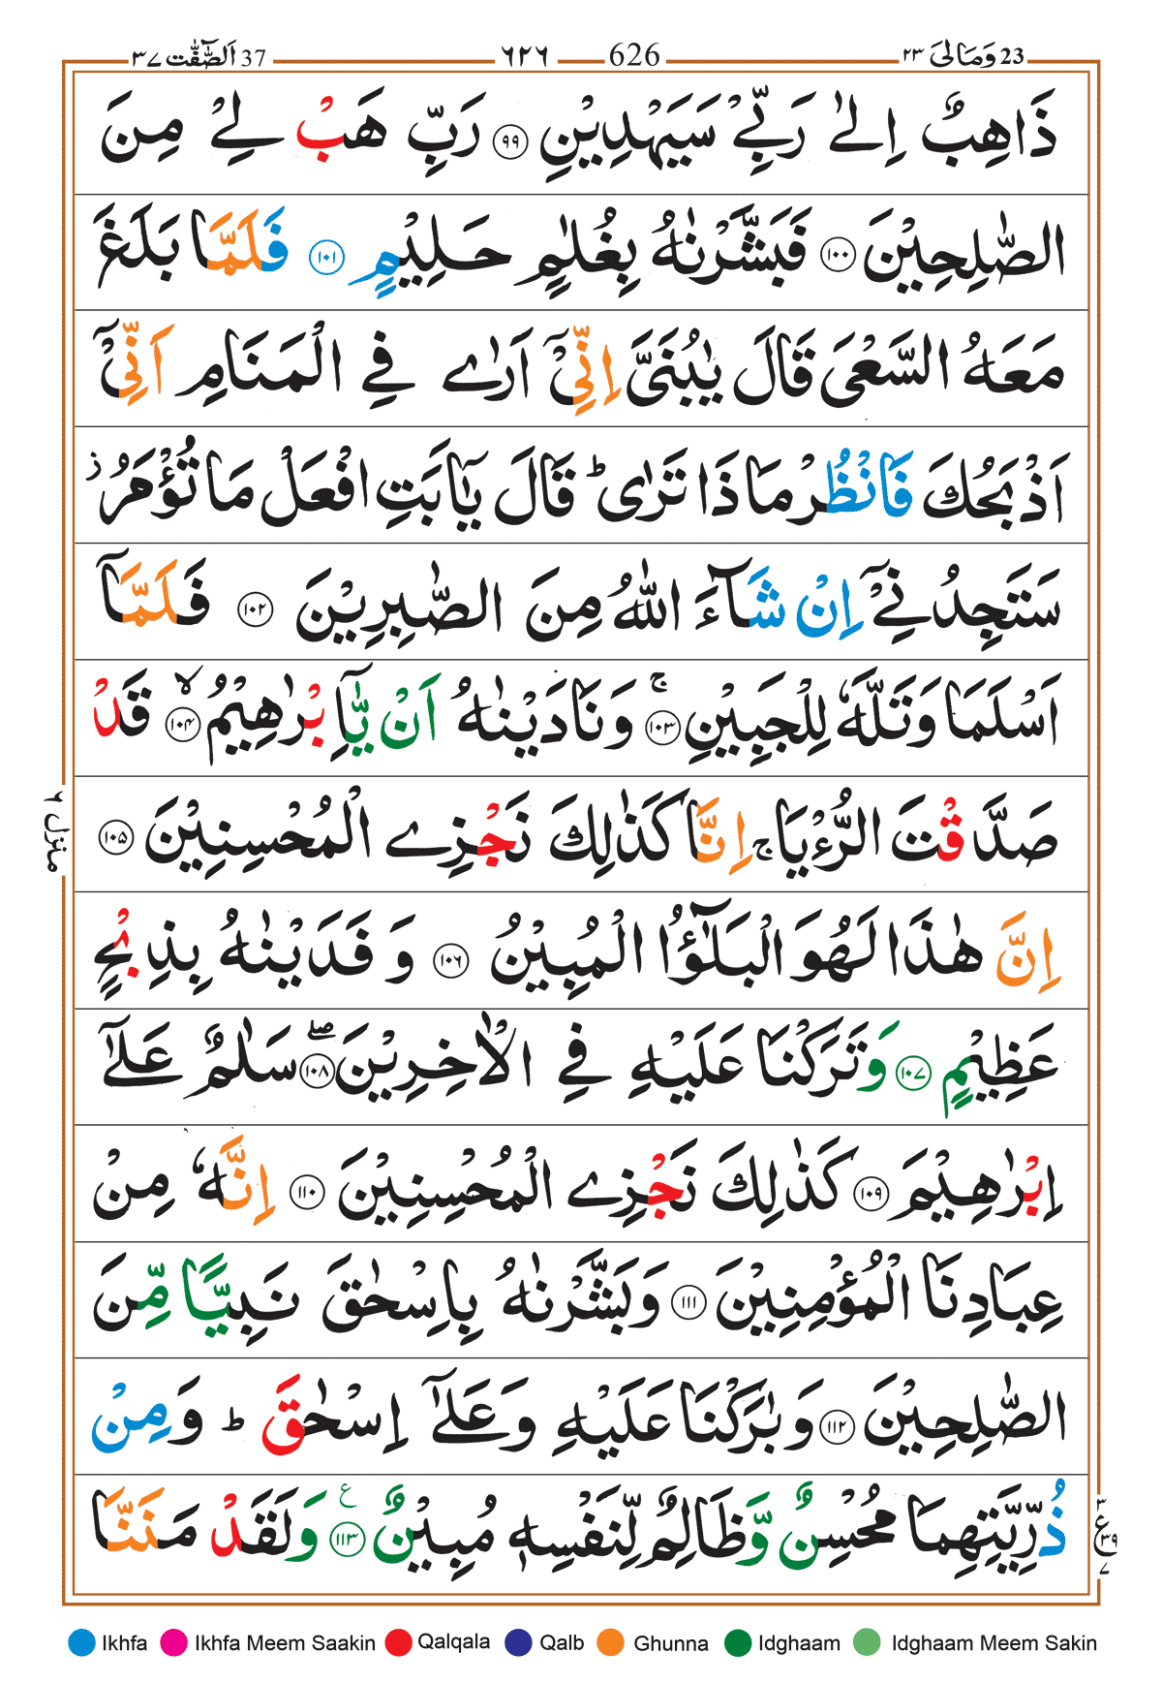 اَلصّٰٓفّٰت ٣٧ 37 ٦٢٦ 626 وَمَالِیَ ٢٣ 23
ذَاهِبٌ اِلٰى رَبِّىْ سَيَهْدِيْنِ ﴿٩٩﴾ رَبِّ هَبْ لِىْ مِنَ
الصّٰلِحِيْنَ ﴿١٠٠﴾ فَبَشَّرْنٰهُ بِغُلٰمٍ حَلِيْمٍ ﴿١٠١﴾ فَلَمَّا بَلَغَ
مَعَهُ السَّعْىَ قَالَ يٰبُنَىَّ اِنِّىْۤ اَرٰى فِى الْمَنَامِ اَنِّىْۤ
اَذْبَحُكَ فَانْظُرْ مَاذَا تَرٰى ؕ قَالَ يٰۤاَبَتِ افْعَلْ مَا تُؤْمَرُ ز
سَتَجِدُنِىْۤ اِنْ شَآءَ اللّٰهُ مِنَ الصّٰبِرِيْنَ ﴿١٠٢﴾ فَلَمَّاۤ
اَسْلَمَا وَتَلَّهٗ لِلْجَبِيْنِ ۚ ﴿١٠٣﴾ وَنَادَيْنٰهُ اَنْ يّٰۤاِبْرٰهِيْمُ ۙ ﴿١٠٤﴾ قَدْ
صَدَّقْتَ الرُّءْيَا ۚ اِنَّا كَذٰلِكَ نَجْزِى الْمُحْسِنِيْنَ ﴿١٠٥﴾
اِنَّ هٰذَا لَهُوَ الْبَلٰٓؤُا الْمُبِيْنُ ﴿١٠٦﴾ وَ فَدَيْنٰهُ بِذِبْحٍ
عَظِيْمٍ ﴿١٠٧﴾ وَتَرَكْنَا عَلَيْهِ فِى الْاٰخِرِيْنَ ۖ ﴿١٠٨﴾ سَلٰمٌ عَلٰٓى
اِبْرٰهِيْمَ ﴿١٠٩﴾ كَذٰلِكَ نَجْزِى الْمُحْسِنِيْنَ ﴿١١٠﴾ اِنَّهٗ مِنْ
عِبَادِنَا الْمُؤْمِنِيْنَ ﴿١١١﴾ وَبَشَّرْنٰهُ بِاِسْحٰقَ نَبِيًّا مِّنَ
الصّٰلِحِيْنَ ﴿١١٢﴾ وَبٰرَكْنَا عَلَيْهِ وَعَلٰٓى اِسْحٰقَ ؕ وَمِنْ
ذُرِّيَّتِهِمَا مُحْسِنٌ وَّظَالِمٌ لِّنَفْسِهٖ مُبِيْنٌ ﴿١١٣﴾ ع وَلَقَدْ مَنَنَّا
منزل ٦
٣ ع ٣٩ ٧
Ikhfa Ikhfa Meem Saakin Qalqala Qalb Ghunna Idghaam Idghaam Meem Sakin